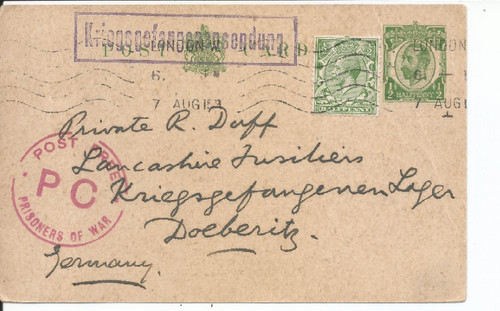 Kriegsgefangenensendung
POST CARD
LONDON W
6.
7 AUG 15
LONDON W
7 AUG 15
HALFPENNY
HALFPENNY
Private R. Duff
Lancashire Fusiliers
Kriegsgefangenen Lager
Doeberitz.
Germany.
POST FREE
PC
PRISONERS OF WAR